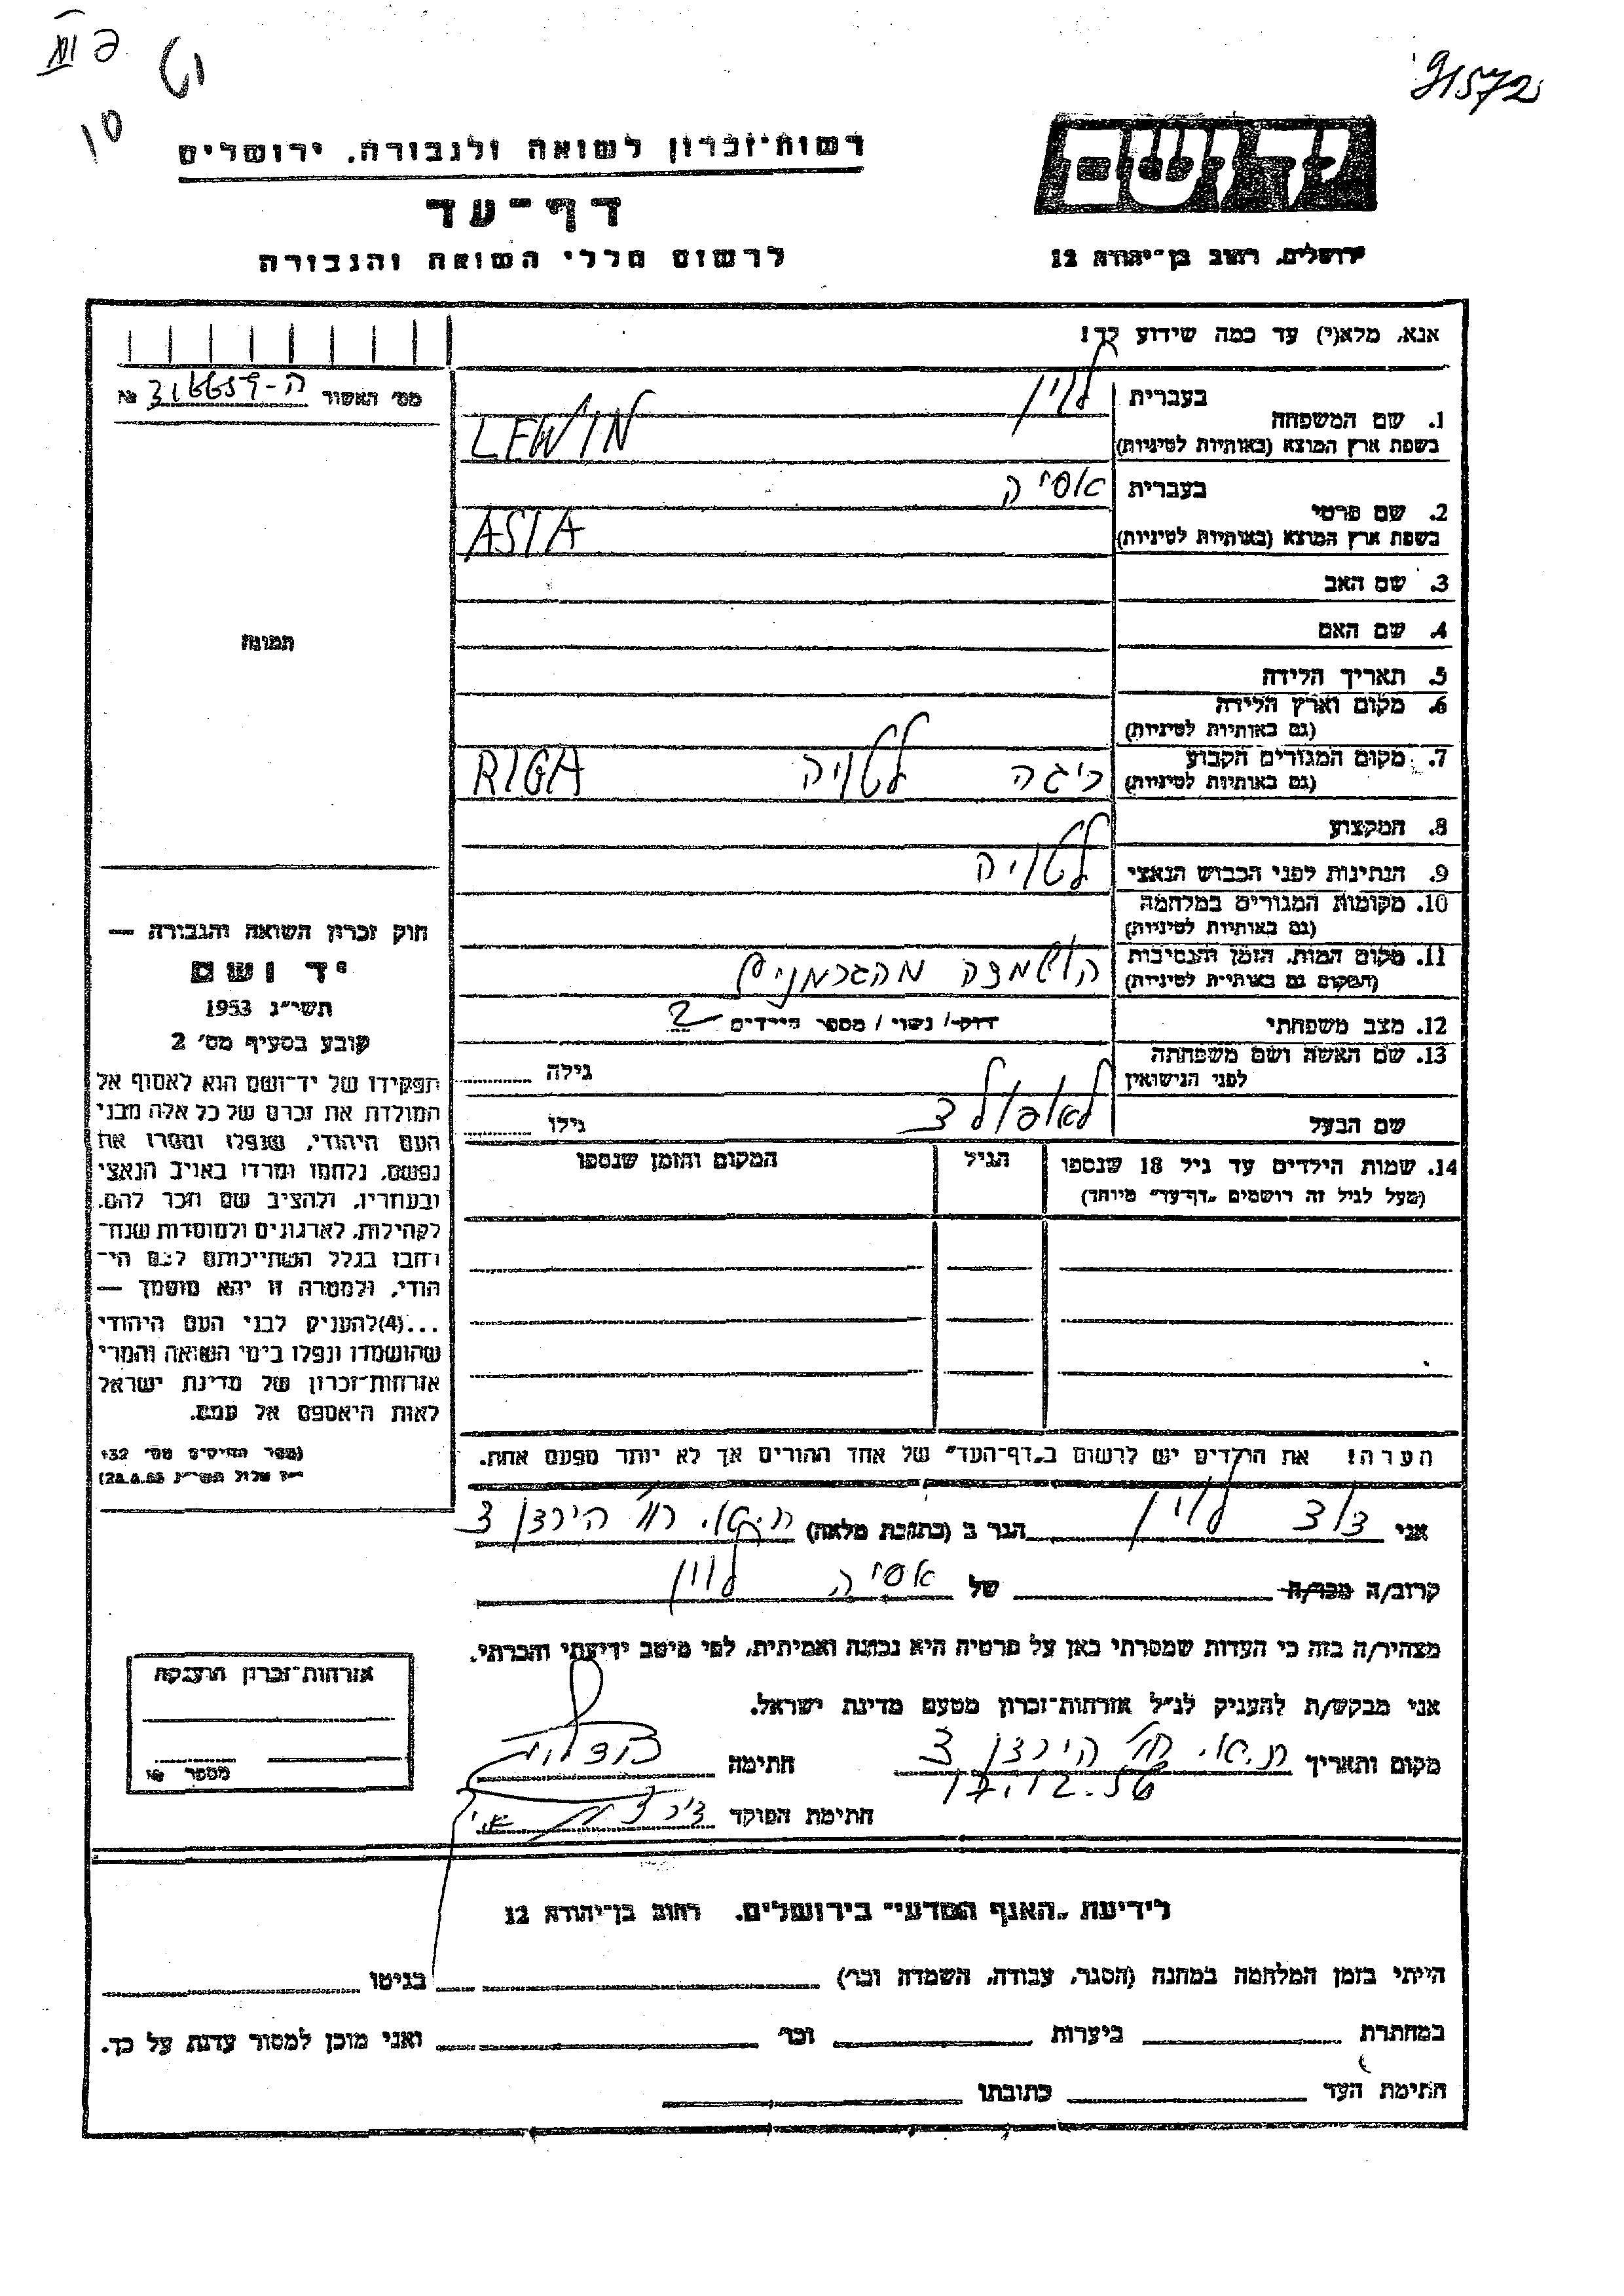 91572
רשות-זכרון לשואה ולגבורה, ירושלים
יד ושם
דף-עד
ירושלים, רחוב בן-יהודה 12
לרשום חללי השואה והגבורה
אנא, מלא(י) עד כמה שידוע לך!
מס' האשור ה-316659 №
1. שם המשפחה
בעברית לוין
בשפת ארץ המוצא (באותיות לטיניות) LEWIN
2. שם פרטי
בעברית אסיה
בשפת ארץ המוצא (באותיות לטיניות) ASIA
3. שם האב
4. שם האם
5. תאריך הלידה
6. מקום וארץ הלידה
(גם באותיות לטיניות)
7. מקום המגורים הקבוע ריגה לטויה RIGA
(גם באותיות לטיניות)
8. המקצוע
9. הנתינות לפני הכבוש הנאצי לטויה
10. מקומות המגורים במלחמה
(גם באותיות לטיניות)
11. מקום המות, הזמן והנסיבות הושמדה מהגרמנים
(המקום גם באותיות לטיניות)
12. מצב משפחתי רוק/ נשוי / מספר הילדים 2
13. שם האשה ושם משפחתה
לפני הנישואין
גילה
שם הבעל לאופולד
גילו
14. שמות הילדים עד גיל 18 שנספו
(מעל לגיל זה רושמים "דף-עד" מיוחד)
הגיל
המקום והזמן שנספו
הערה! את הילדים יש לרשום ב"דף-העד" של אחד ההורים אך לא יותר מפעם אחת.
תמונה
חוק זכרון השואה והגבורה —
יד ושם
תשי"ג 1953
קובע בסעיף מס' 2
תפקידו של יד-ושם הוא לאסוף אל
המולדת את זכרם של כל אלה מבני
העם היהודי, שנפלו ומסרו את
נפשם, נלחמו ומרדו באויב הנאצי
ובעוזריו, ולהציב שם וזכר להם,
לקהילות, לארגונים ולמוסדות שנח-
רבו בגלל השתייכותם לעם הי-
הודי, ולמטרה זו יהא מוסמך —
...(4)להעניק לבני העם היהודי
שהושמדו ונפלו בימי השואה והמרי
אזרחות-זכרון של מדינת ישראל
לאות היאספם אל עמם.
(ספר החוקים מס' 132
י"ז אלול תשי"ג 28.8.53)
אני דוד לוין הגר ב (כתובת מלאה) ת.א. רח' הירדן 3
קרוב/ה מכר/ה של אסיה לוין
מצהיר/ה בזה כי העדות שמסרתי כאן על פרטיה היא נכונה ואמיתית, לפי מיטב ידיעתי והכרתי.
אני מבקש/ת להעניק לנ"ל אזרחות-זכרון מטעם מדינת ישראל.
מקום ותאריך ת.א. רח' הירדן 3 חתימה
17.12.56
חתימת הפוקד
אזרחות-זכרון הוענקה
מספר №
לידיעת "האגף המדעי" בירושלים, רחוב בן-יהודה 12
הייתי בזמן המלחמה במחנה (הסגר, עבודה, השמדה וכו') בגיטו
במחתרת ביערות וכו' ואני מוכן למסור עדות על כך.
חתימת העד כתובתו